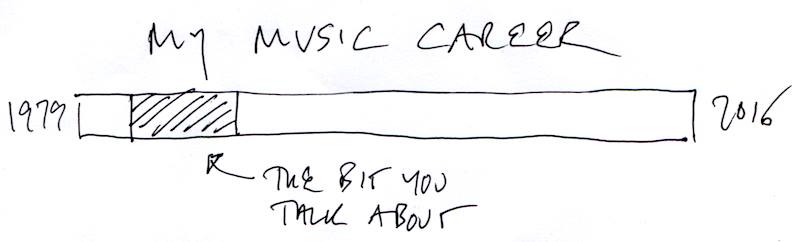 MY MUSIC CAREER
1979
2016
THE BIT YOU
TALK ABOUT